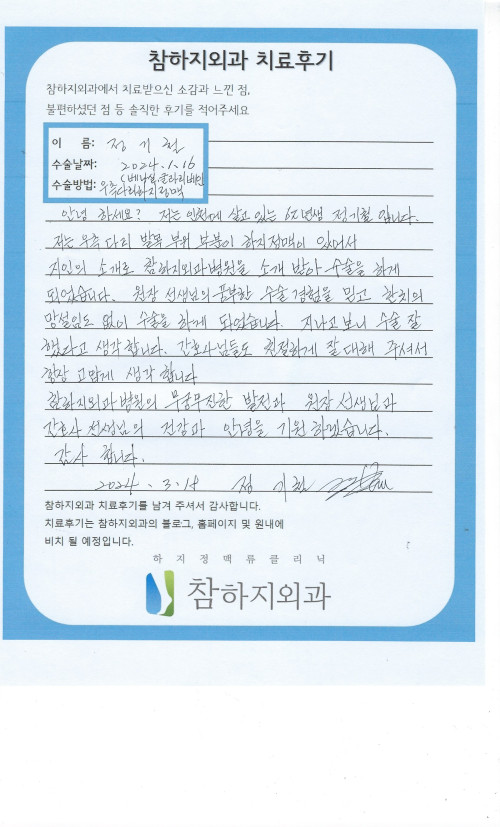 참하지외과 치료후기
참하지외과에서 치료받으신 소감과 느낀 점,
불편하셨던 점 등 솔직한 후기를 적어주세요
이 름: 정 기 철
수술날짜: 2024. 1. 16
수술방법: (베나실, 클라리베인)
우측다리하지정맥
안녕 하세요? 저는 인천에 살고 있는 62년생 정기철 입니다.
저는 우측 다리 발목 부위 부분이 하지정맥이 있어서
지인의 소개로 참하지외과병원을 소개 받아 수술을 하게
되었습니다. 원장 선생님의 풍부한 수술 경험을 믿고 한치의
망설임도 없이 수술을 하게 되었습니다. 지나고 보니 수술 잘
했다고 생각 합니다. 간호사님들도 친절하게 잘 대해 주셔서
굉장 고맙게 생각 합니다
참하지외과 병원의 무궁무진한 발전과 원장 선생님과
간호사 선생님의 건강과 안녕을 기원 하겠습니다.
감사 합니다.
2024. 3. 18 정 기철
참하지외과 치료후기를 남겨 주셔서 감사합니다.
치료후기는 참하지외과의 블로그, 홈페이지 및 원내에
비치 될 예정입니다.
하지정맥류클리닉
참하지외과